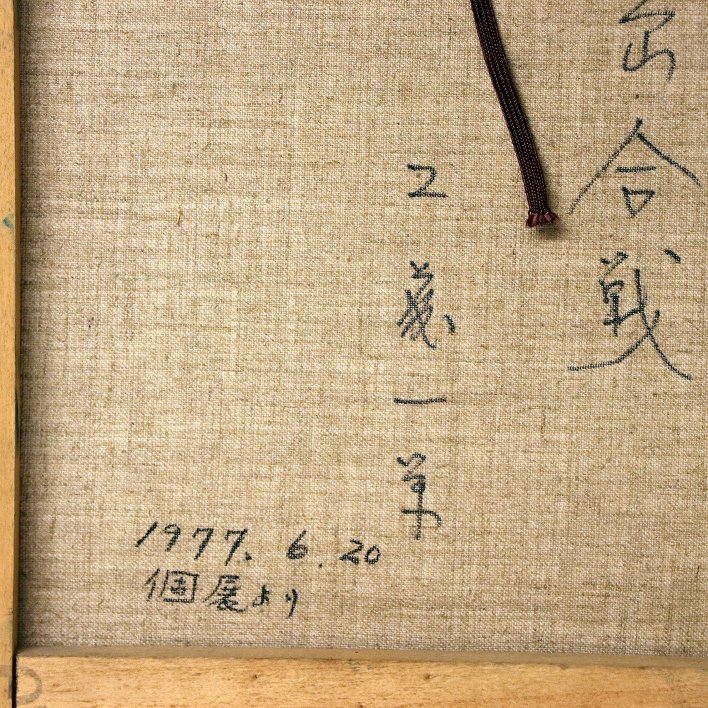 合戦
義一筆
1977. 6. 20
個展より